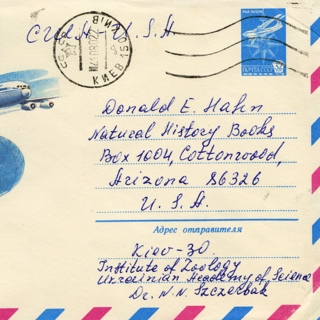 США - U.S.A
КИЕВ
ПОЧТА СССР
Donald E. Hahn
Natural History Books
Box 1004, Cottonwood,
Arizona 86326
U.S.A
Адрес отправителя
Kiev-30
Institute of Zoology
Ukrainian Academy of Science
Dr. N.N. Szczerbak